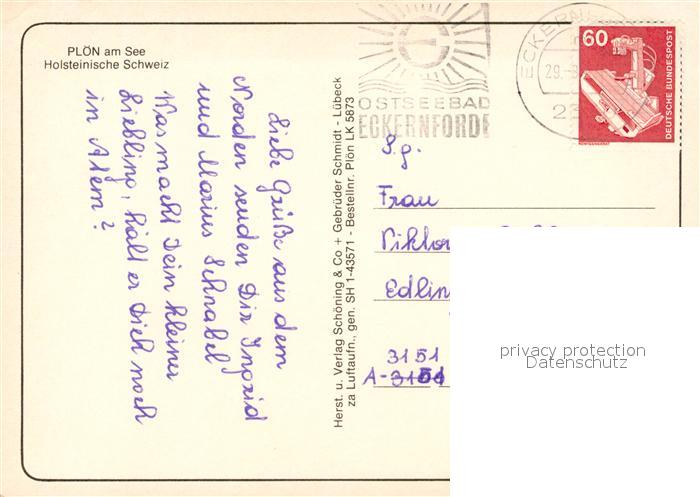 PLÖN am See
Holsteinische Schweiz
Liebe Grüße aus dem
Norden senden Dir Ingrid
und Marius Schnabel
Was macht Dein kleiner
Liebling, hält er Dich noch
in Atem?
Herst. u. Verlag Schöning & Co + Gebrüder Schmidt - Lübeck
za Luftaufn., gen. SH 1-43571 - Bestellnr. Plön LK 5873
OSTSEEBAD
ECKERNFÖRDE
ECKERN
29.-8.
60
DEUTSCHE BUNDESPOST
RÖNTGENGERÄT
S.g.
Frau
Viktor
Edlin
3151
A-3151
privacy protection
Datenschutz